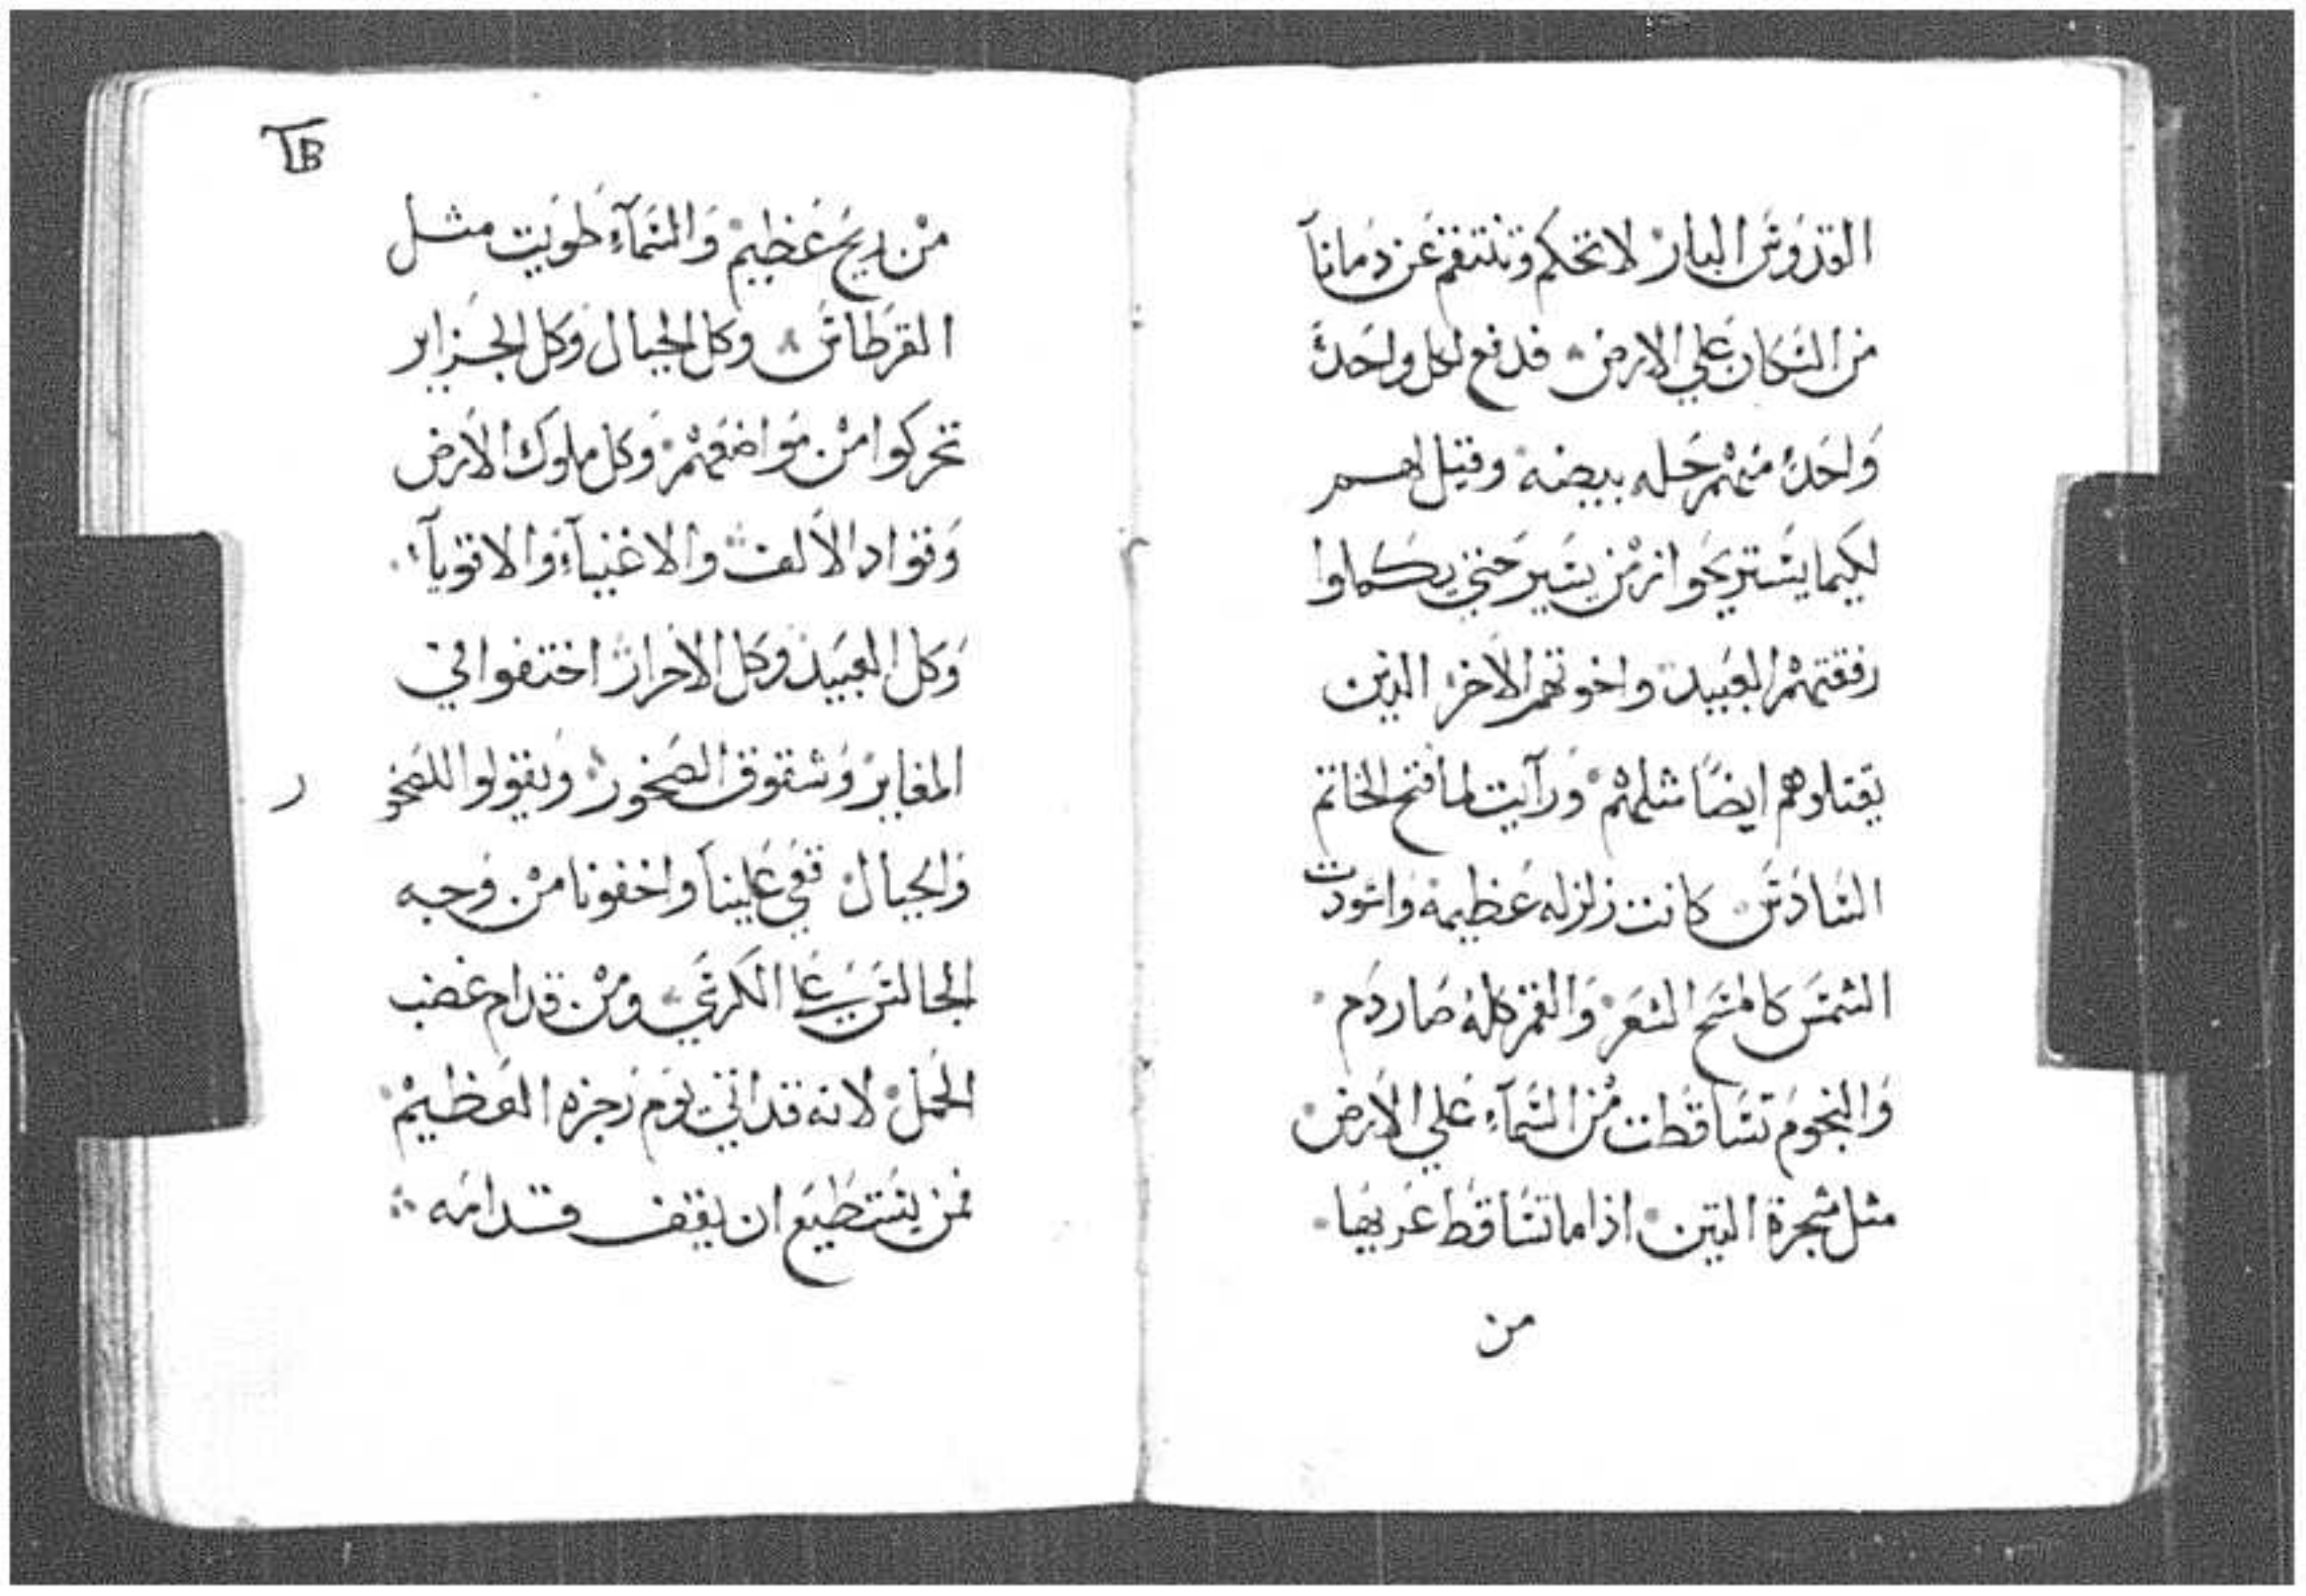 القدوس البار لا تحكم وتنتقم عن دمانا
من السكان علي الارض فدفع لكل واحد
واحد منهم حله بيضه وقيل لهم
لكيما يستريحوا زمن يسير حتي يكملوا
رفقتهم العبيد واخوتهم الاخر الذين
يقتلوهم ايضا مثلهم ورآيت لما فتح الخاتم
السادس كانت زلزله عظيمه واسودت
الشمس كالمسح الشعر والقمر كله صار دم
والنجوم تساقطت من السمآء علي الارض
مثل شجرة التين اذا ما تساقط
من
TB
من ريح عظيم والسمآء طويت مثل
القرطاس وكل الجبال وكل الجزاير
تحركوا من مواضعهم وكل ملوك الارض
وقواد الالف والاغنيآء والاقويآء
وكل العبيد وكل الاحرار اختفوا في
المغاير وشقوق الصخور ويقولوا للصخو
ر
والجبال قعي علينا واخفونا من وجه
الجالس علي الكرسي ومن قدام غضب
الحمل لانه قد اتي يوم رجزه العظيم
فمن يستطيع ان يقف قدامه